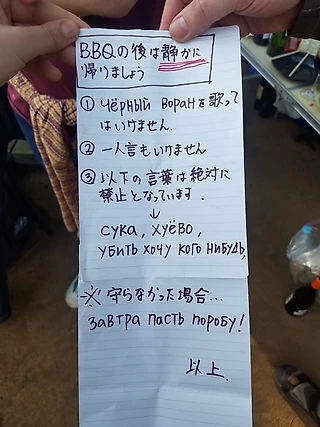 BBQの後は静かに
帰りましょう
① Чёрный воранを歌って
はいけません.
② 一人言もいけません
③ 以下の言葉は絶対に
禁止となっています.
↓
сука, хуёво,
убить хочу кого нибудь,
※ 守らなかった場合...
завтра пасть поробу!
以上.